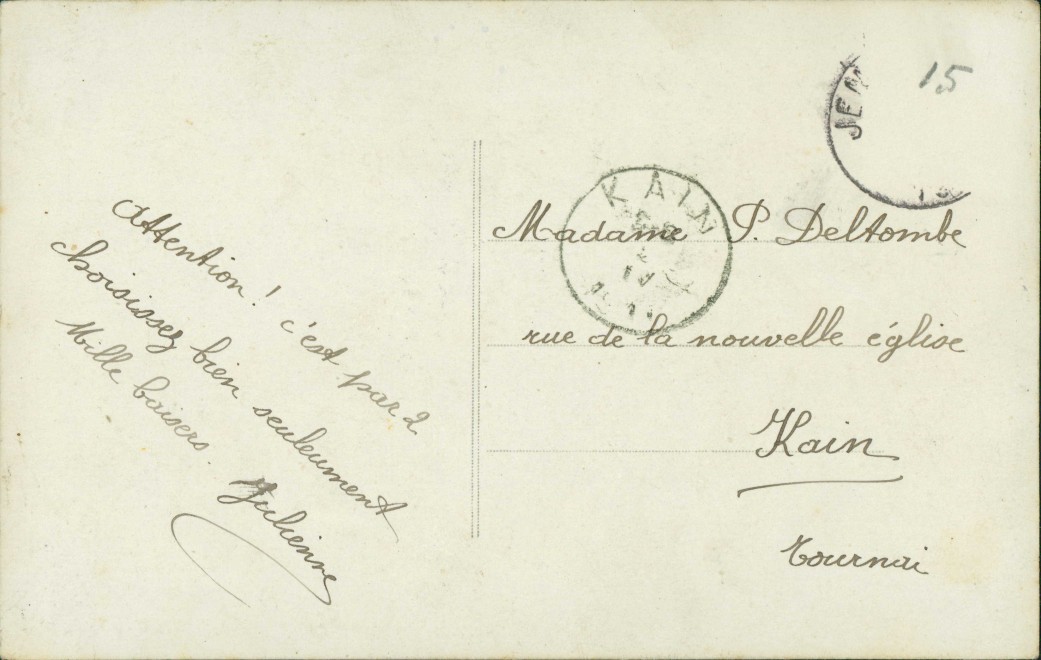 Attention! c'est par 2
choisissez bien seuleument
Mille baisers.
Julienne
15
JEM
KAIN
Madame P. Deltombe
rue de la nouvelle église
Kain
Tournai